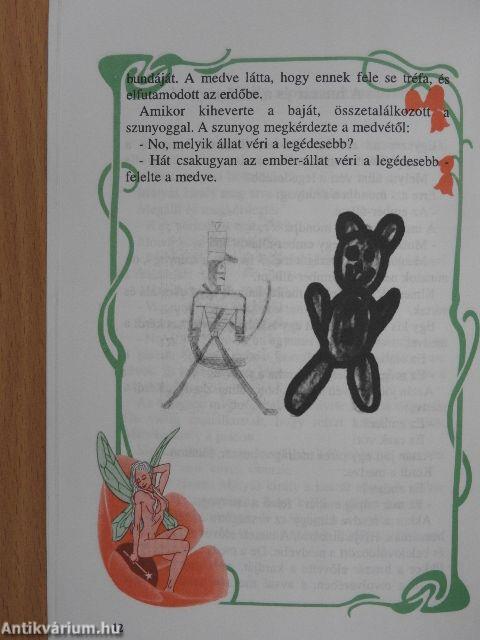 bundáját. A medve látta, hogy ennek fele se tréfa, és
elfutamodott az erdőbe.
Amikor kiheverte a baját, összetalálkozott a
szunyoggal. A szunyog megkérdezte a medvétől:
- No, melyik állat véri a legédesebb?
- Hát csakugyan az ember-állat véri a legédesebb -
felelte a medve.
12
Antikvárium.hu